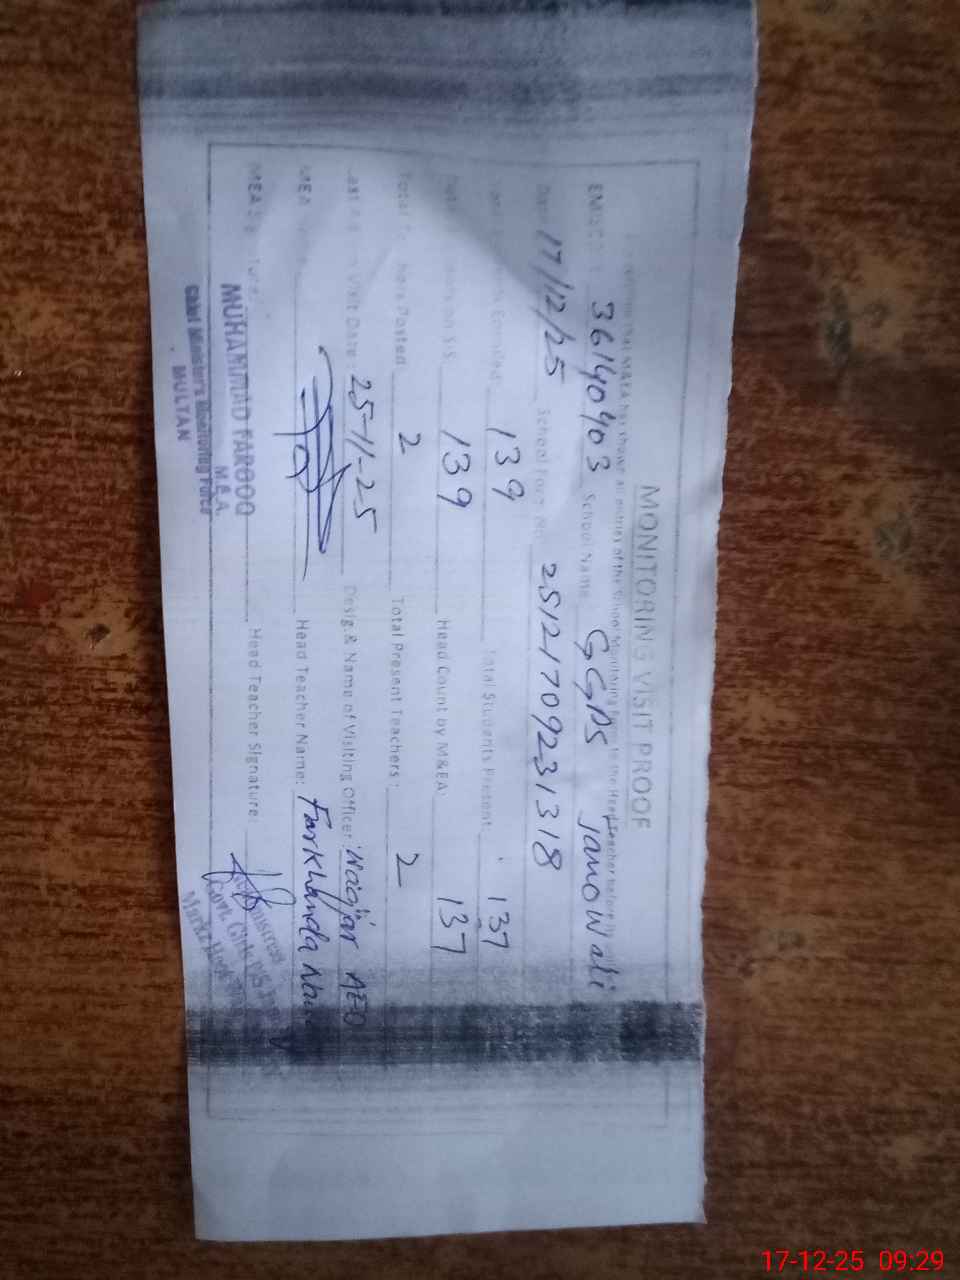 MONITORING VISIT PROOF
M&EA has shown all entries of the School Monitoring Form to the Head Teacher before
36140403 School Name GGPS Janowali
17/12/25 School Form 25121709231318
Enrolled: 139 Total Students Present: 137
S.I.S: 139 Head Count by M&EA: 137
Posted 2 Total Present Teachers: 2
Visit Date: 25-11-25 Desig & Name of Visiting Officer: AEO
MEA Head Teacher Name: Farkhanda
MEA Head Teacher Signature:
MUHAMMAD FAROOQ
M.E.A.
Chief Minister's Monitoring Force
MULTAN
Govt. Girls P/S
17-12-25 09:29